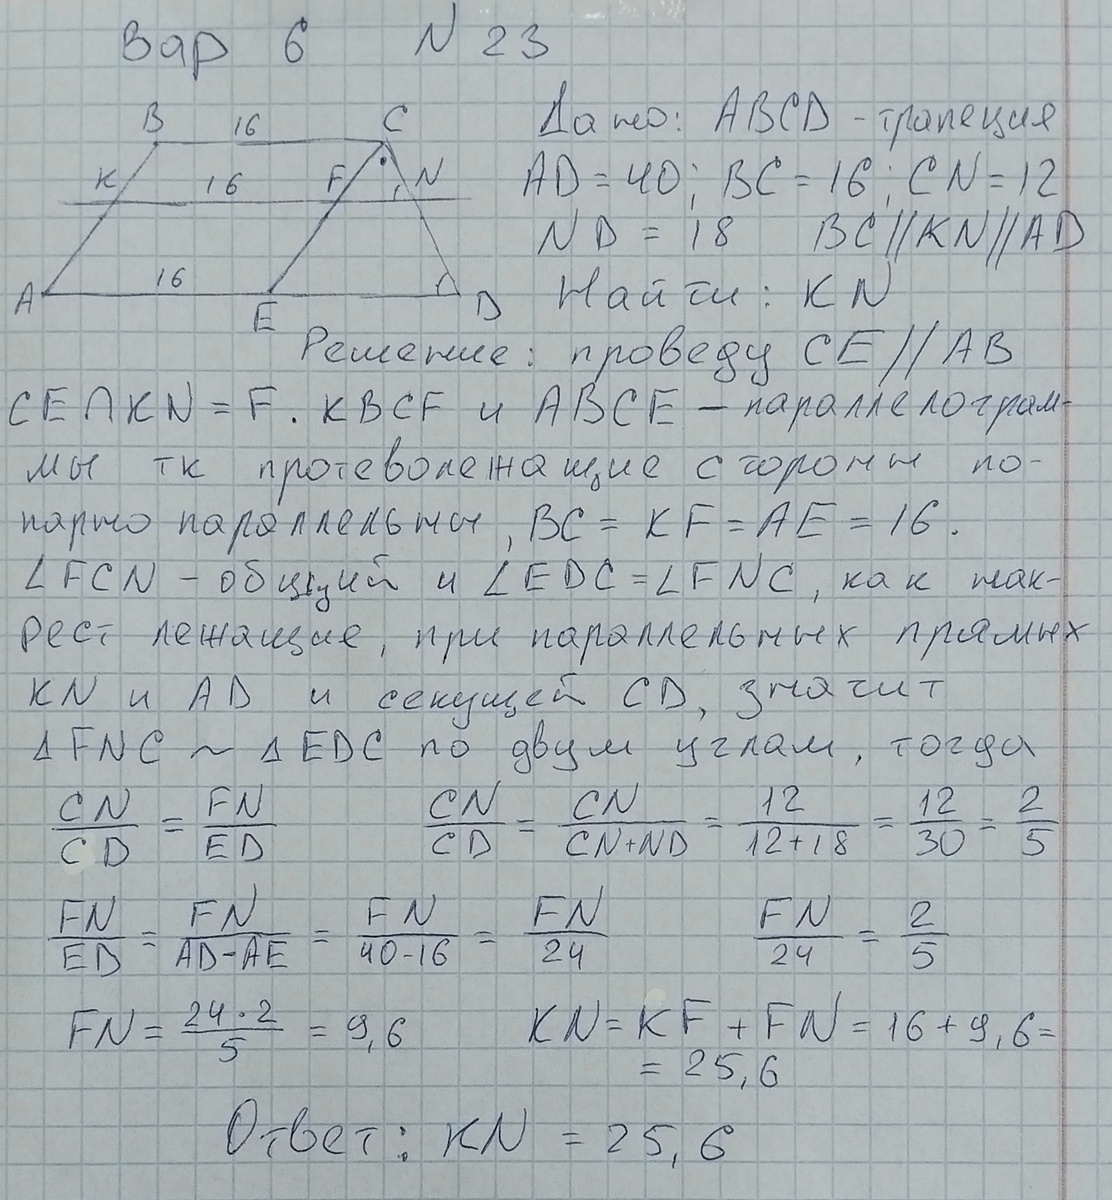 Вар 6 N 23
B 16 C
K 16 F N
A 16 E D
Дано: ABCD - трапеция
AD = 40; BC = 16; CN = 12
ND = 18 BC//KN//AD
Найти: KN
Решение: проведу CE // AB
CE ∩ KN = F. KBCF и ABCE – параллелограм-
мы тк протеволежащие стороны по-
парно параллельны, BC = KF = AE = 16.
∠FCN - общий и ∠EDC = ∠FNC, как нак-
рест лежащие, при параллельных прямых
KN и AD и секущей CD, значит
ΔFNC ~ ΔEDC по двум углам, тогда
CN/CD = FN/ED CN/CD = CN/CN+ND = 12/12+18 = 12/30 = 2/5
FN/ED = FN/AD-AE = FN/40-16 = FN/24 FN/24 = 2/5
FN = 24·2/5 = 9,6 KN = KF + FN = 16 + 9,6 =
= 25,6
Ответ: KN = 25,6